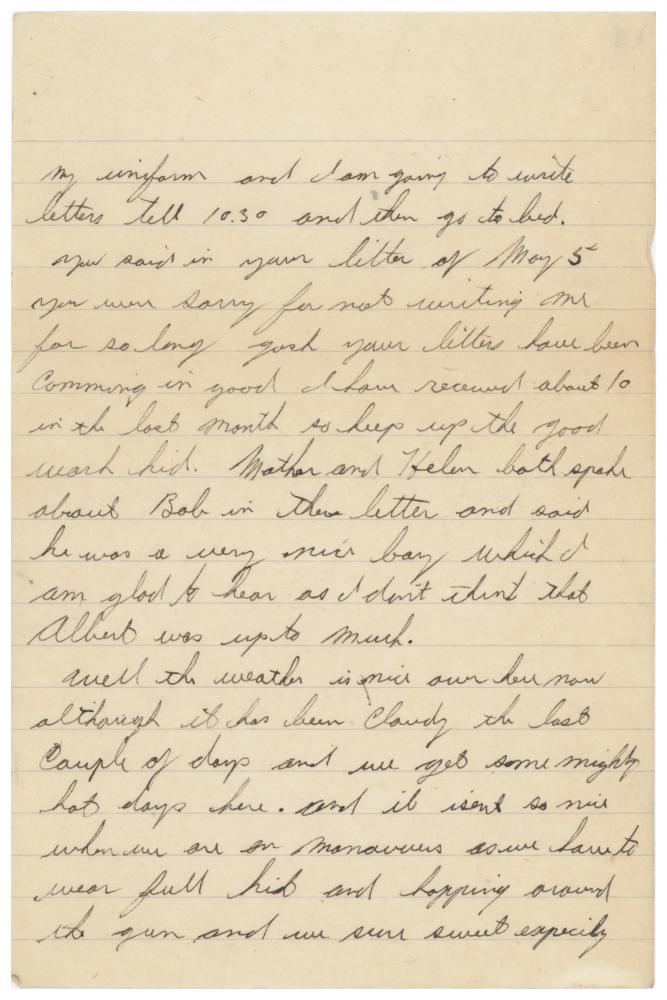 my uniform and I am going to write
letters till 10.30 and then go to bed.
you said in your letter of May 5
you were sorry for not writing me
for so long gosh your letters have been
Comming in good I have received about 10
in the last month so keep up the good
work kid. Mother and Helen both spoke
about Bob in their letter and said
he was a very nice boy which I
am glad to hear as I don't think that
Albert was up to much.
Well the weather is nice over here now
although it has been cloudy the last
Couple of days and we get some mighty
hot days here. and it isent so nice
when we are on manovuers as we have to
wear full kit and hopping around
the gun and we sure sweet expecily